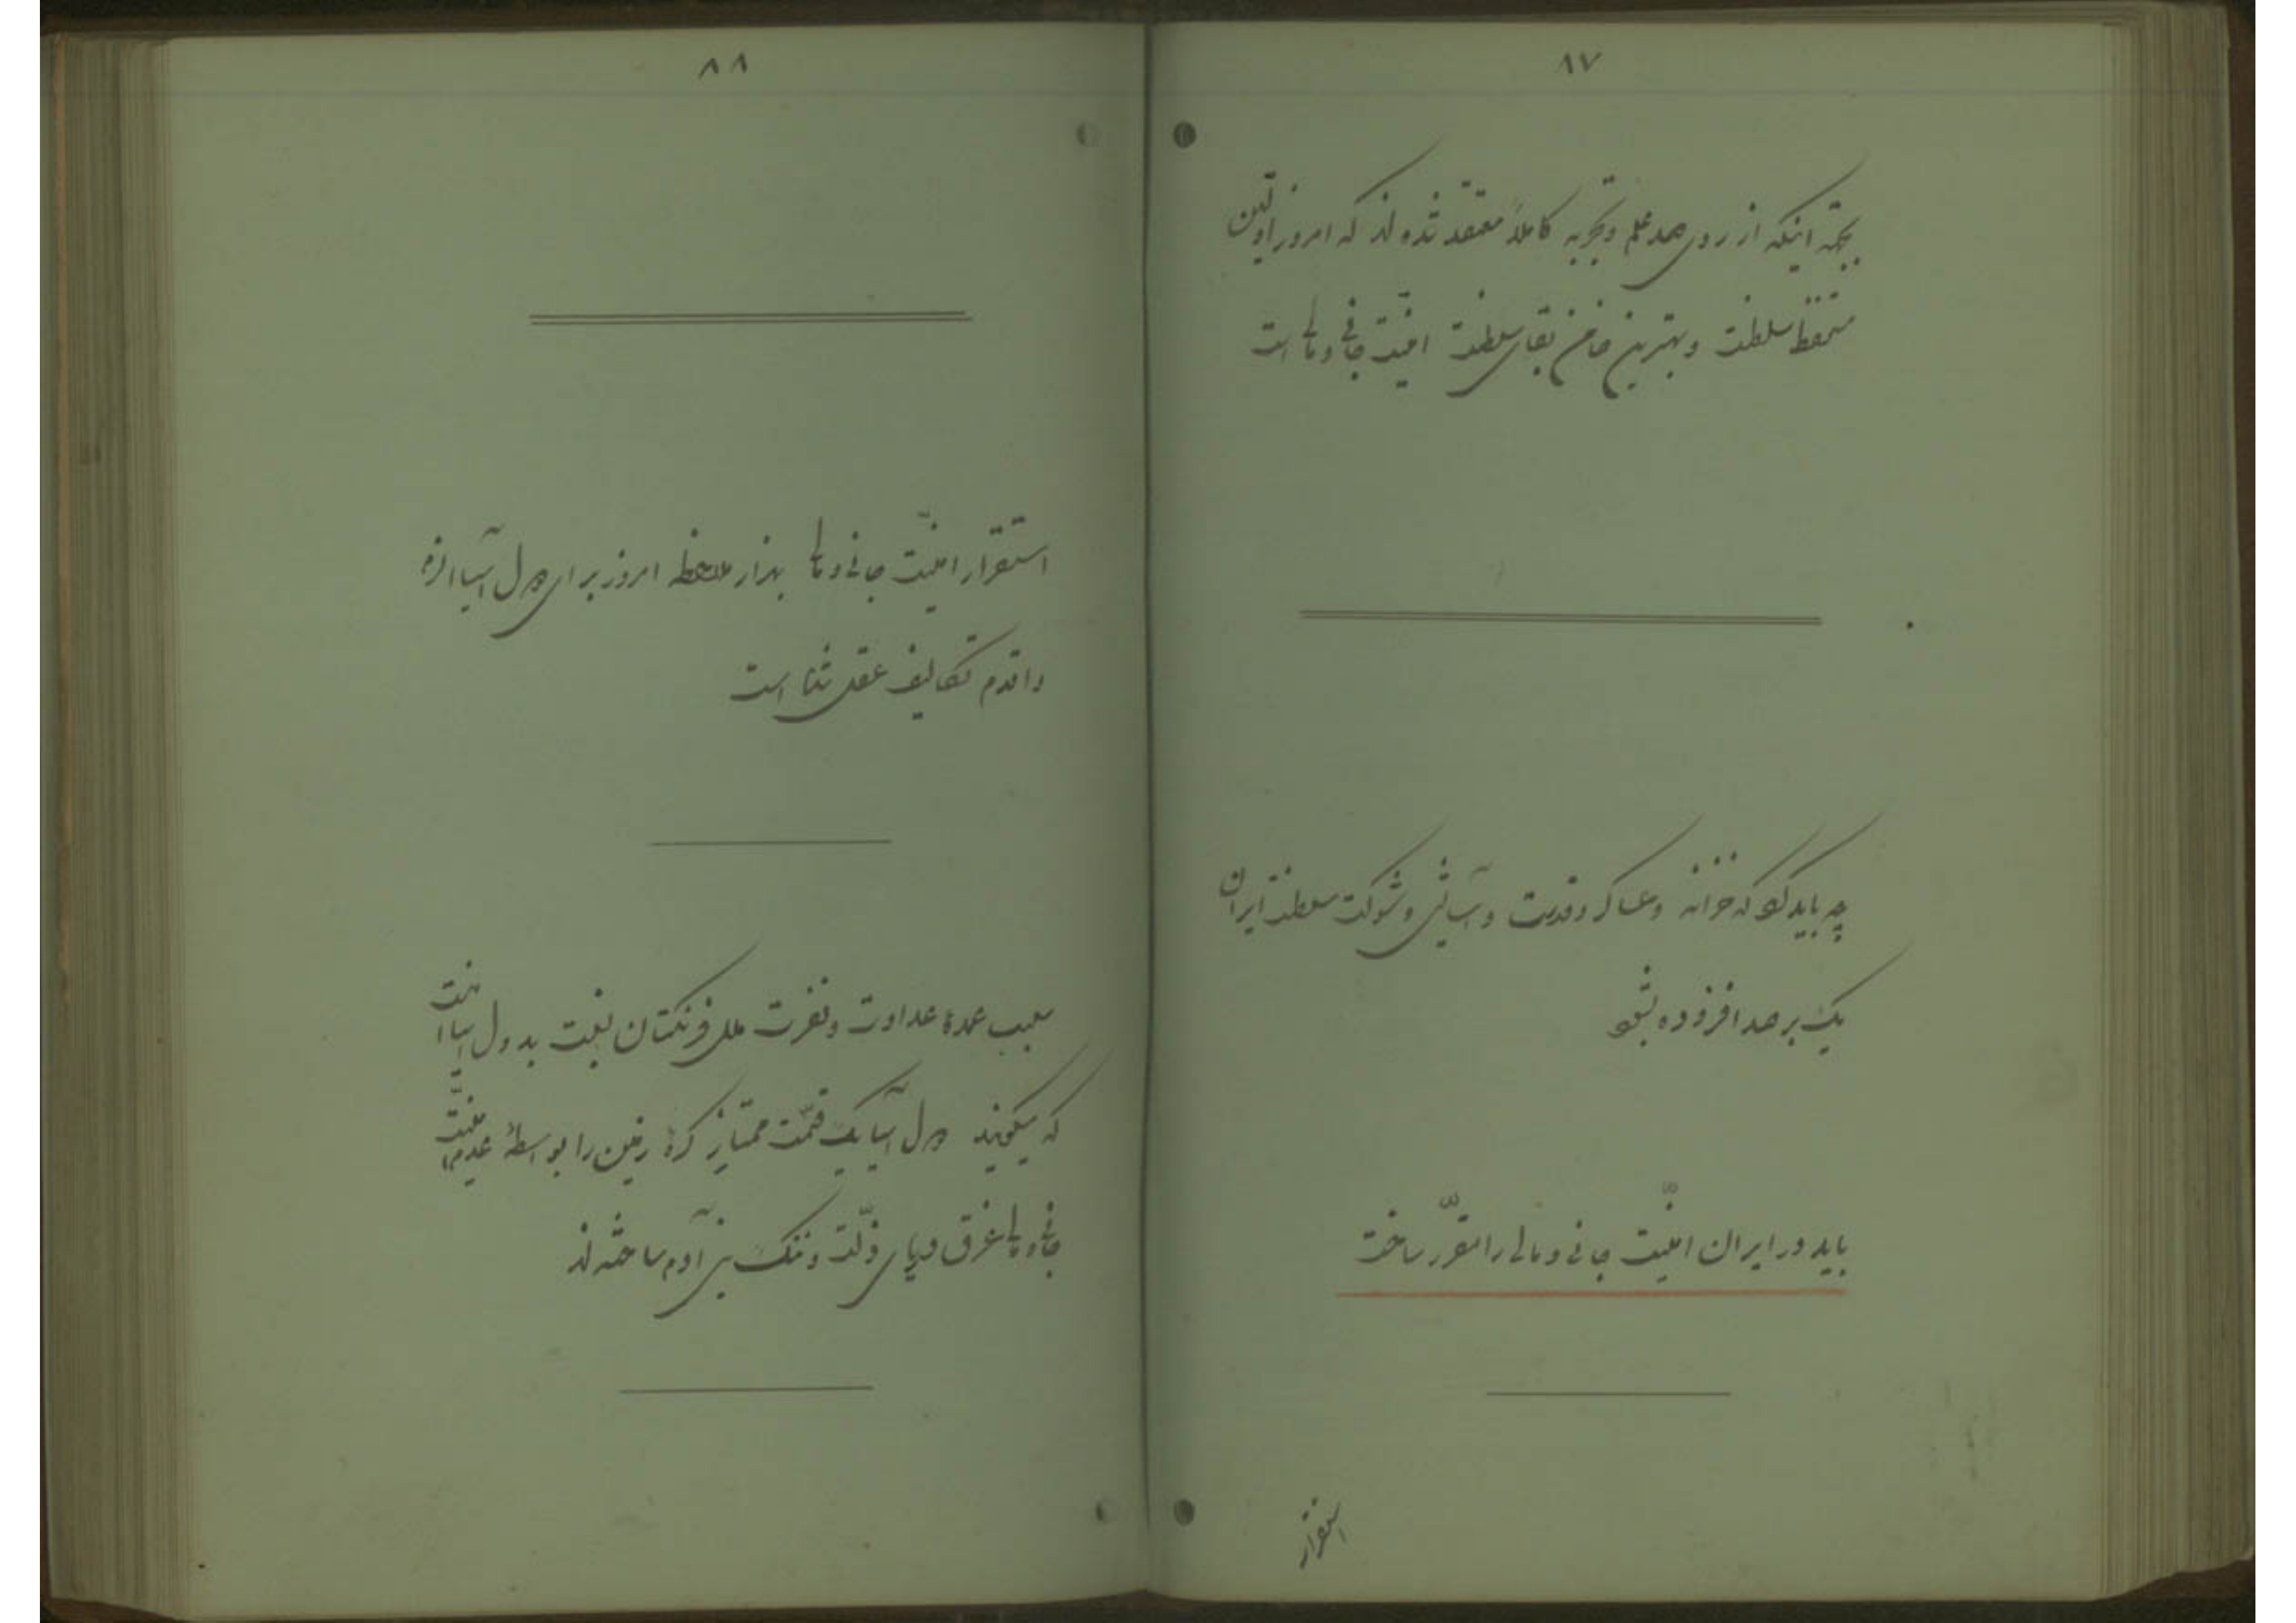 ۸۷
بجهة اینکه از روی صد علم و تجربه کاملاً معتقد شده‌اند که امروز اولین
مستحفظ سلطنت و بهترین ضامن بقای سلطنت امنیت جانی و مالی است
چه باید کرد که خزانه و عساکر و قدرت و آسایش و شوکت سلطنت ایران
یک بر صد افزوده بشود
باید در ایران امنیّت جانی و مالی را مقرّر ساخت
استقرار
۸۸
استقرار امنیّت جانی و مالی بهزار ملاحظه امروز برای دول آسیا الزم
و اقدم تکالیف عقلی شده است
سبب عمدهٔ عداوت و نفرت ملل فرنگستان نسبت بدول آسیا اینست
که میگویند دول آسیا یک قسمت ممتاز کرهٔ زمین را بواسطهٔ عدم امنیّت
جانی و مالی غرق دریای ذلّت و ننگ بنی آدم ساخته‌اند